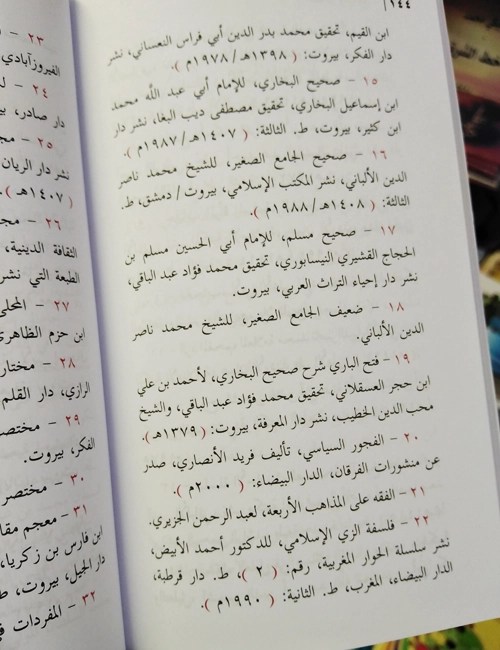 ١٤٤
ابن القيم، تحقيق محمد بدر الدين أبي فراس النعساني، نشر
دار الفكر، بيروت: ( ١٣٩٨هـ/١٩٧٨م ).
١٥ - صحيح البخاري، للإمام أبي عبد الله محمد
ابن إسماعيل البخاري، تحقيق مصطفى ديب البغا، نشر دار
ابن كثير، بيروت، ط. الثالثة: ( ١٤٠٧هـ/١٩٨٧م ).
١٦ - صحيح الجامع الصغير، للشيخ محمد ناصر
الدين الألباني، نشر المكتب الإسلامي، بيروت/دمشق، ط.
الثالثة: ( ١٤٠٨هـ/١٩٨٨م ).
١٧ - صحيح مسلم، للإمام أبي الحسين مسلم بن
الحجاج القشيري النيسابوري، تحقيق محمد فؤاد عبد الباقي،
نشر دار إحياء التراث العربي، بيروت.
١٨ - ضعيف الجامع الصغير، للشيخ محمد ناصر
الدين الألباني.
١٩ - فتح الباري شرح صحيح البخاري، لأحمد بن علي
ابن حجر العسقلاني، تحقيق محمد فؤاد عبد الباقي، والشيخ
محب الدين الخطيب، نشر دار المعرفة، بيروت: ( ١٣٧٩هـ ).
٢٠ - الفجور السياسي، تأليف فريد الأنصاري، صدر
عن منشورات الفرقان، الدار البيضاء: ( ٢٠٠٠م ).
٢١ - الفقه على المذاهب الأربعة، لعبد الرحمن الجزيري.
٢٢ - فلسفة الزي الإسلامي، للدكتور أحمد الأبيض،
نشر سلسلة الحوار المغربية، رقم: ( ٢ )، ط. دار قرطبة،
الدار البيضاء، المغرب، ط. الثانية: ( ١٩٩٠م ).
٢٣ -
الفيروزآبادي
٢٤ -
دار صادر،
٢٥ -
نشر دار الريان
١٤٠٧هـ ).
٢٦ -
الثقافة الدينية،
الطبعة التي نشر
٢٧ - المحلى
ابن حزم الظاهري
٢٨ - مختار
الرازي، دار القلم
٢٩ -
الفكر، بيروت.
٣٠ - مختصر
٣١ - معجم
ابن فارس بن زكريا،
دار الجيل، بيروت،
٣٢ - المفردات